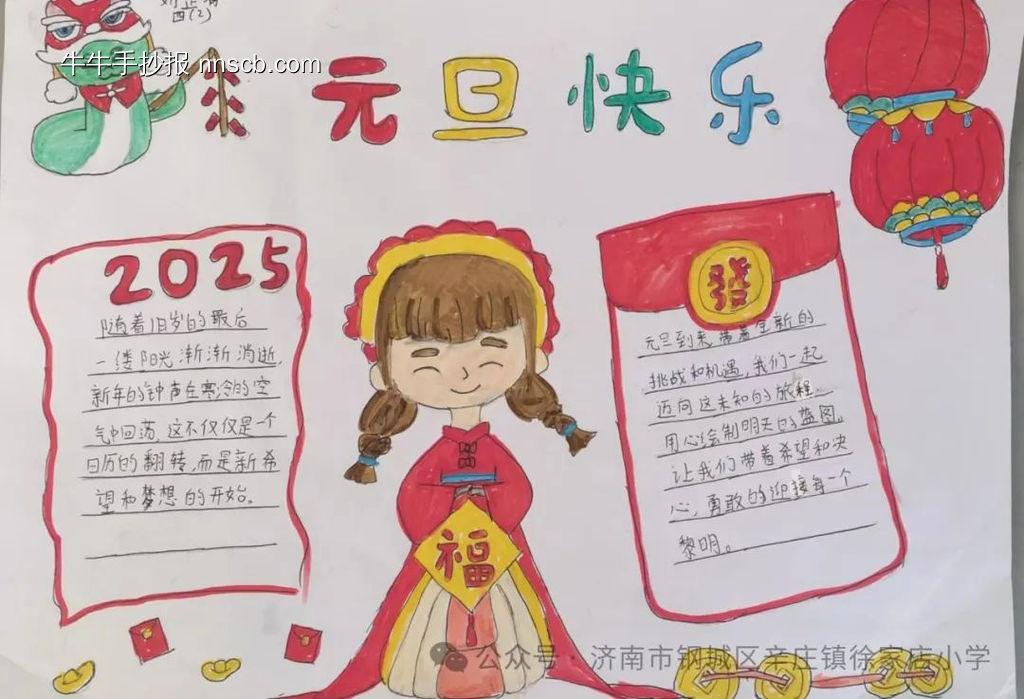 四(2)
牛牛手抄报 nnscb.com
元旦快乐
2025
随着旧岁的最后
一缕阳光渐渐消逝,
新年的钟声在寒冷的空
气中回荡,这不仅仅是一个
日历的翻转,而是新希
望和梦想的开始。
發
元旦到来带着全新的
挑战和机遇,我们一起
迈向这未知的旅程.
用心绘制明天的蓝图。
让我们带着希望和决
心,勇敢的迎接每一个
黎明。
福
公众号·济南市钢城区辛庄镇徐家店小学